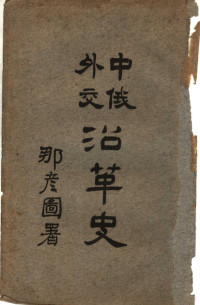 中俄
外交
沿革史
那彥圖署